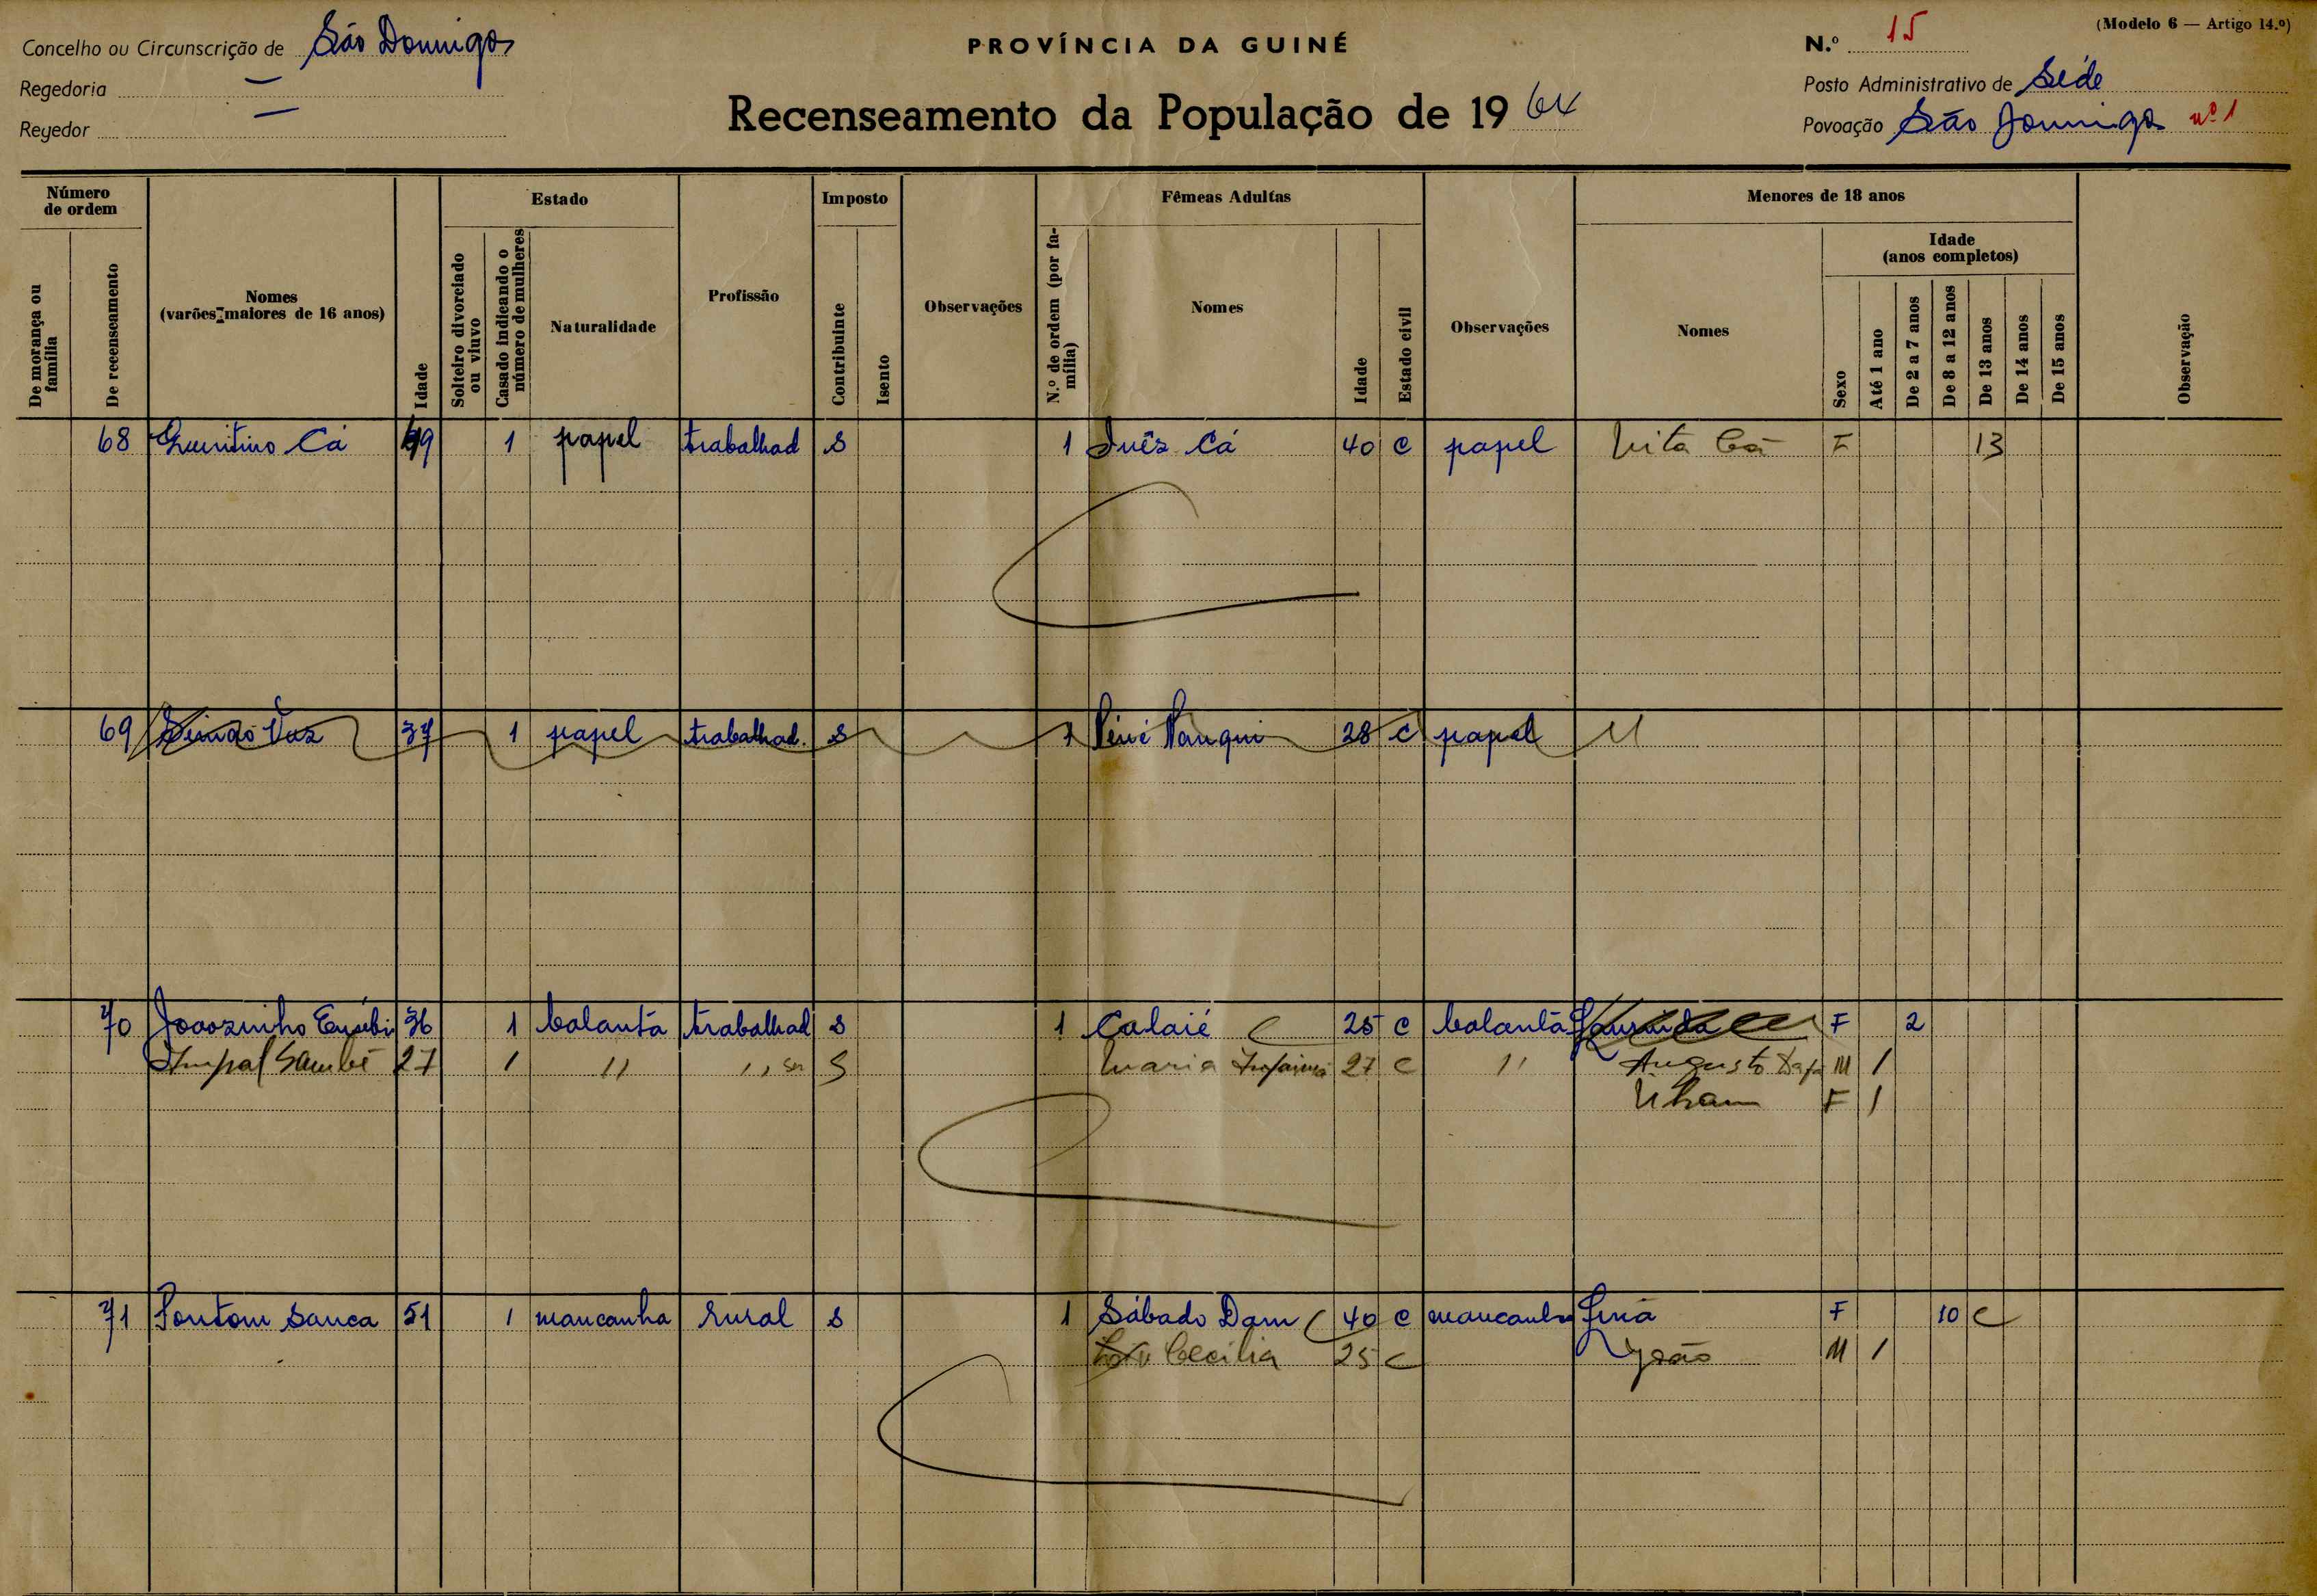 Concelho ou Circunscrição de São Domingos
Regedoria —
Regedor —
PROVÍNCIA DA GUINÉ
Recenseamento da População de 1964
(Modelo 6 — Artigo 14.º)
N.º 15
Posto Administrativo de Séde
Povoação São Domingos nº 1
Número de ordem
De morança ou família
De recenseamento
Nomes (varões maiores de 16 anos)
Idade
Estado
Solteiro divorciado ou viuvo
Casado indicando o número de mulheres
Naturalidade
Profissão
Imposto
Contribuinte
Isento
Observações
Fêmeas Adultas
N.º de ordem (por família)
Nomes
Idade
Estado civil
Observações
Menores de 18 anos
Nomes
Idade (anos completos)
Sexo
Até 1 ano
De 2 a 7 anos
De 8 a 12 anos
De 13 anos
De 14 anos
De 15 anos
Observação
68 Cá 49 1 papel trabalhad S 1 Inês Cá 40 C papel Cá F 13
69 Vaz 37 1 papel trabalhad. S 1 28 C papel
70 Joaozinho Eusébi 36 1 balanta trabalhad S 1 Calaié C 25 C balanta F 2
27 1 " " S Maria 27 C " Augusto M 1
F 1
71 Sanca 51 1 mancanha rural S 1 Sábado Dam 40 C mancanha F 10 C
Cecilia 25 C M 1